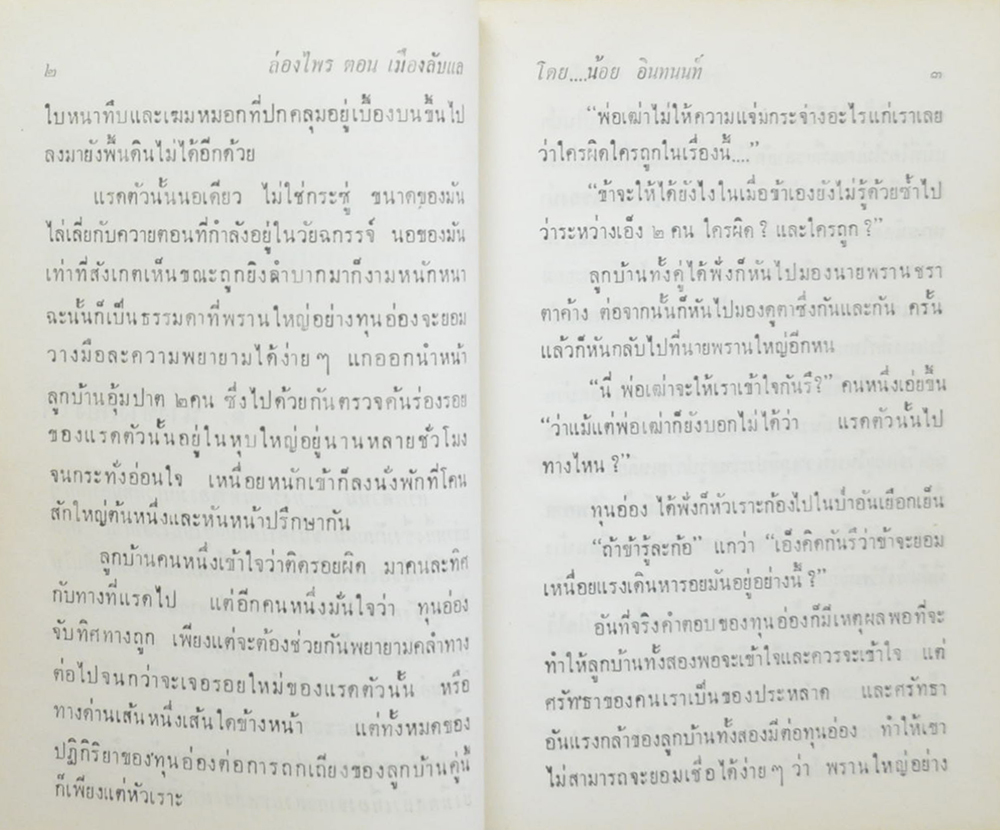 ๒ ล่องไพร ตอน เมืองลับแล
ใบหนาทึบและเฆมหมอกที่ปกคลุมอยู่เบื้องบนขึ้นไป
ลงมายังพื้นดินไม่ได้อีกด้วย
แรดตัวนั้นนอเดียว ไม่ใช่กระซู่ ขนาดของมัน
ไล่เลี่ยกับควายตอนที่กำลังอยู่ในวัยฉกรรจ์ นอของมัน
เท่าที่สังเกตเห็นขณะถูกยิงลำบากมาก็งามหนักหนา
ฉะนั้นก็เป็นธรรมดาที่พรานใหญ่อย่างทุนอ่องจะยอม
วางมือละความพยายามได้ง่ายๆ แกออกนำหน้า
ลูกบ้านอุ้มปาด ๒คน ซึ่งไปด้วยกันตรวจค้นร่องรอย
ของแรดตัวนั้นอยู่ในหุบใหญ่อยู่นานหลายชั่วโมง
จนกระทั่งอ่อนใจ เหนื่อยหนักเข้าก็ลงนั่งพักที่โคน
สักใหญ่ต้นหนึ่งและหันหน้าปรึกษากัน
ลูกบ้านคนหนึ่งเข้าใจว่าติดรอยผิด มาคนละทิศ
กับทางที่แรดไป แต่อีกคนหนึ่งมั่นใจว่า ทุนอ่อง
จับทิศทางถูก เพียงแต่จะต้องช่วยกันพยายามคลำทาง
ต่อไปจนกว่าจะเจอรอยใหม่ของแรดตัวนั้น หรือ
ทางด่านเส้นหนึ่งเส้นใดข้างหน้า แต่ทั้งหมดของ
ปฏิกิริยาของทุนอ่องต่อการถกเถียงของลูกบ้านคู่นี้
ก็เพียงแต่หัวเราะ
โดย....น้อย อินทนนท์ ๓
“พ่อเฒ่าไม่ให้ความแจ่มกระจ่างอะไรแก่เราเลย
ว่าใครผิดใครถูกในเรื่องนี้....”
“ข้าจะให้ได้ยังไงในเมื่อข้าเองยังไม่รู้ด้วยซ้ำไป
ว่าระหว่างเอ็ง ๒ คน ใครผิด ? และใครถูก ?”
ลูกบ้านทั้งคู่ได้ฟังก็หันไปมองนายพรานชรา
ตาค้าง ต่อจากนั้นก็หันไปมองดูตาซึ่งกันและกัน ครั้น
แล้วก็หันกลับไปที่นายพรานใหญ่อีกหน
“นี่ พ่อเฒ่าจะให้เราเข้าใจกันรึ?” คนหนึ่งเอ่ยขึ้น
“ว่าแม้แต่พ่อเฒ่าก็ยังบอกไม่ได้ว่า แรดตัวนั้นไป
ทางไหน ?”
ทุนอ่อง ได้ฟังก็หัวเราะก้องไปในป่าอันเยือกเย็น
“ถ้าข้ารู้ละก้อ” แกว่า “เอ็งคิดกันรึว่าข้าจะยอม
เหนื่อยแรงเดินหารอยมันอยู่อย่างนี้ ?”
อันที่จริงคำตอบของทุนอ่องก็มีเหตุผลพอที่จะ
ทำให้ลูกบ้านทั้งสองพอจะเข้าใจและควรจะเข้าใจ แต่
ศรัทธาของคนเราเป็นของประหลาด และศรัทธา
อันแรงกล้าของลูกบ้านทั้งสองมีต่อทุนอ่อง ทำให้เขา
ไม่สามารถจะยอมเชื่อได้ง่ายๆ ว่า พรานใหญ่อย่าง